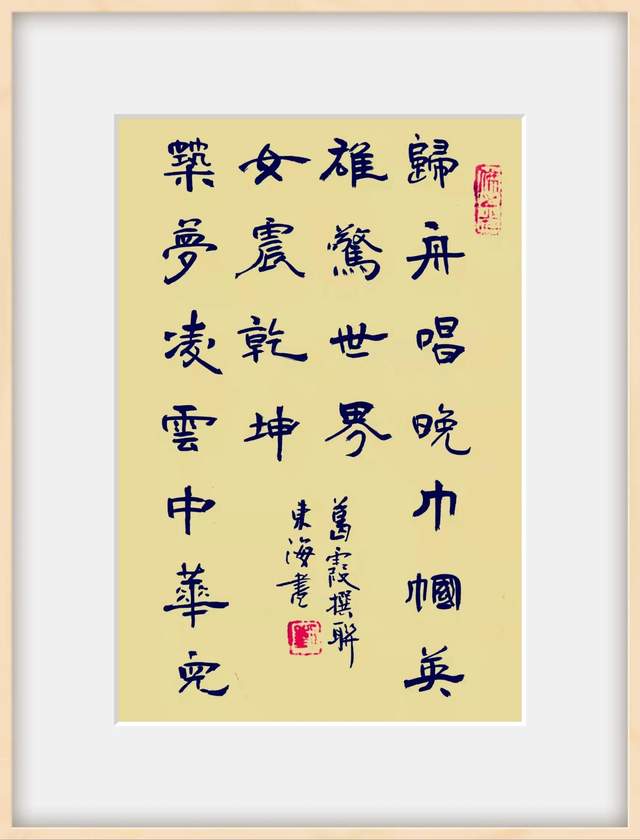 歸舟唱晚巾幗英
雄驚世界
築夢凌雲中華兒
女震乾坤
葛霞撰聯
東海書